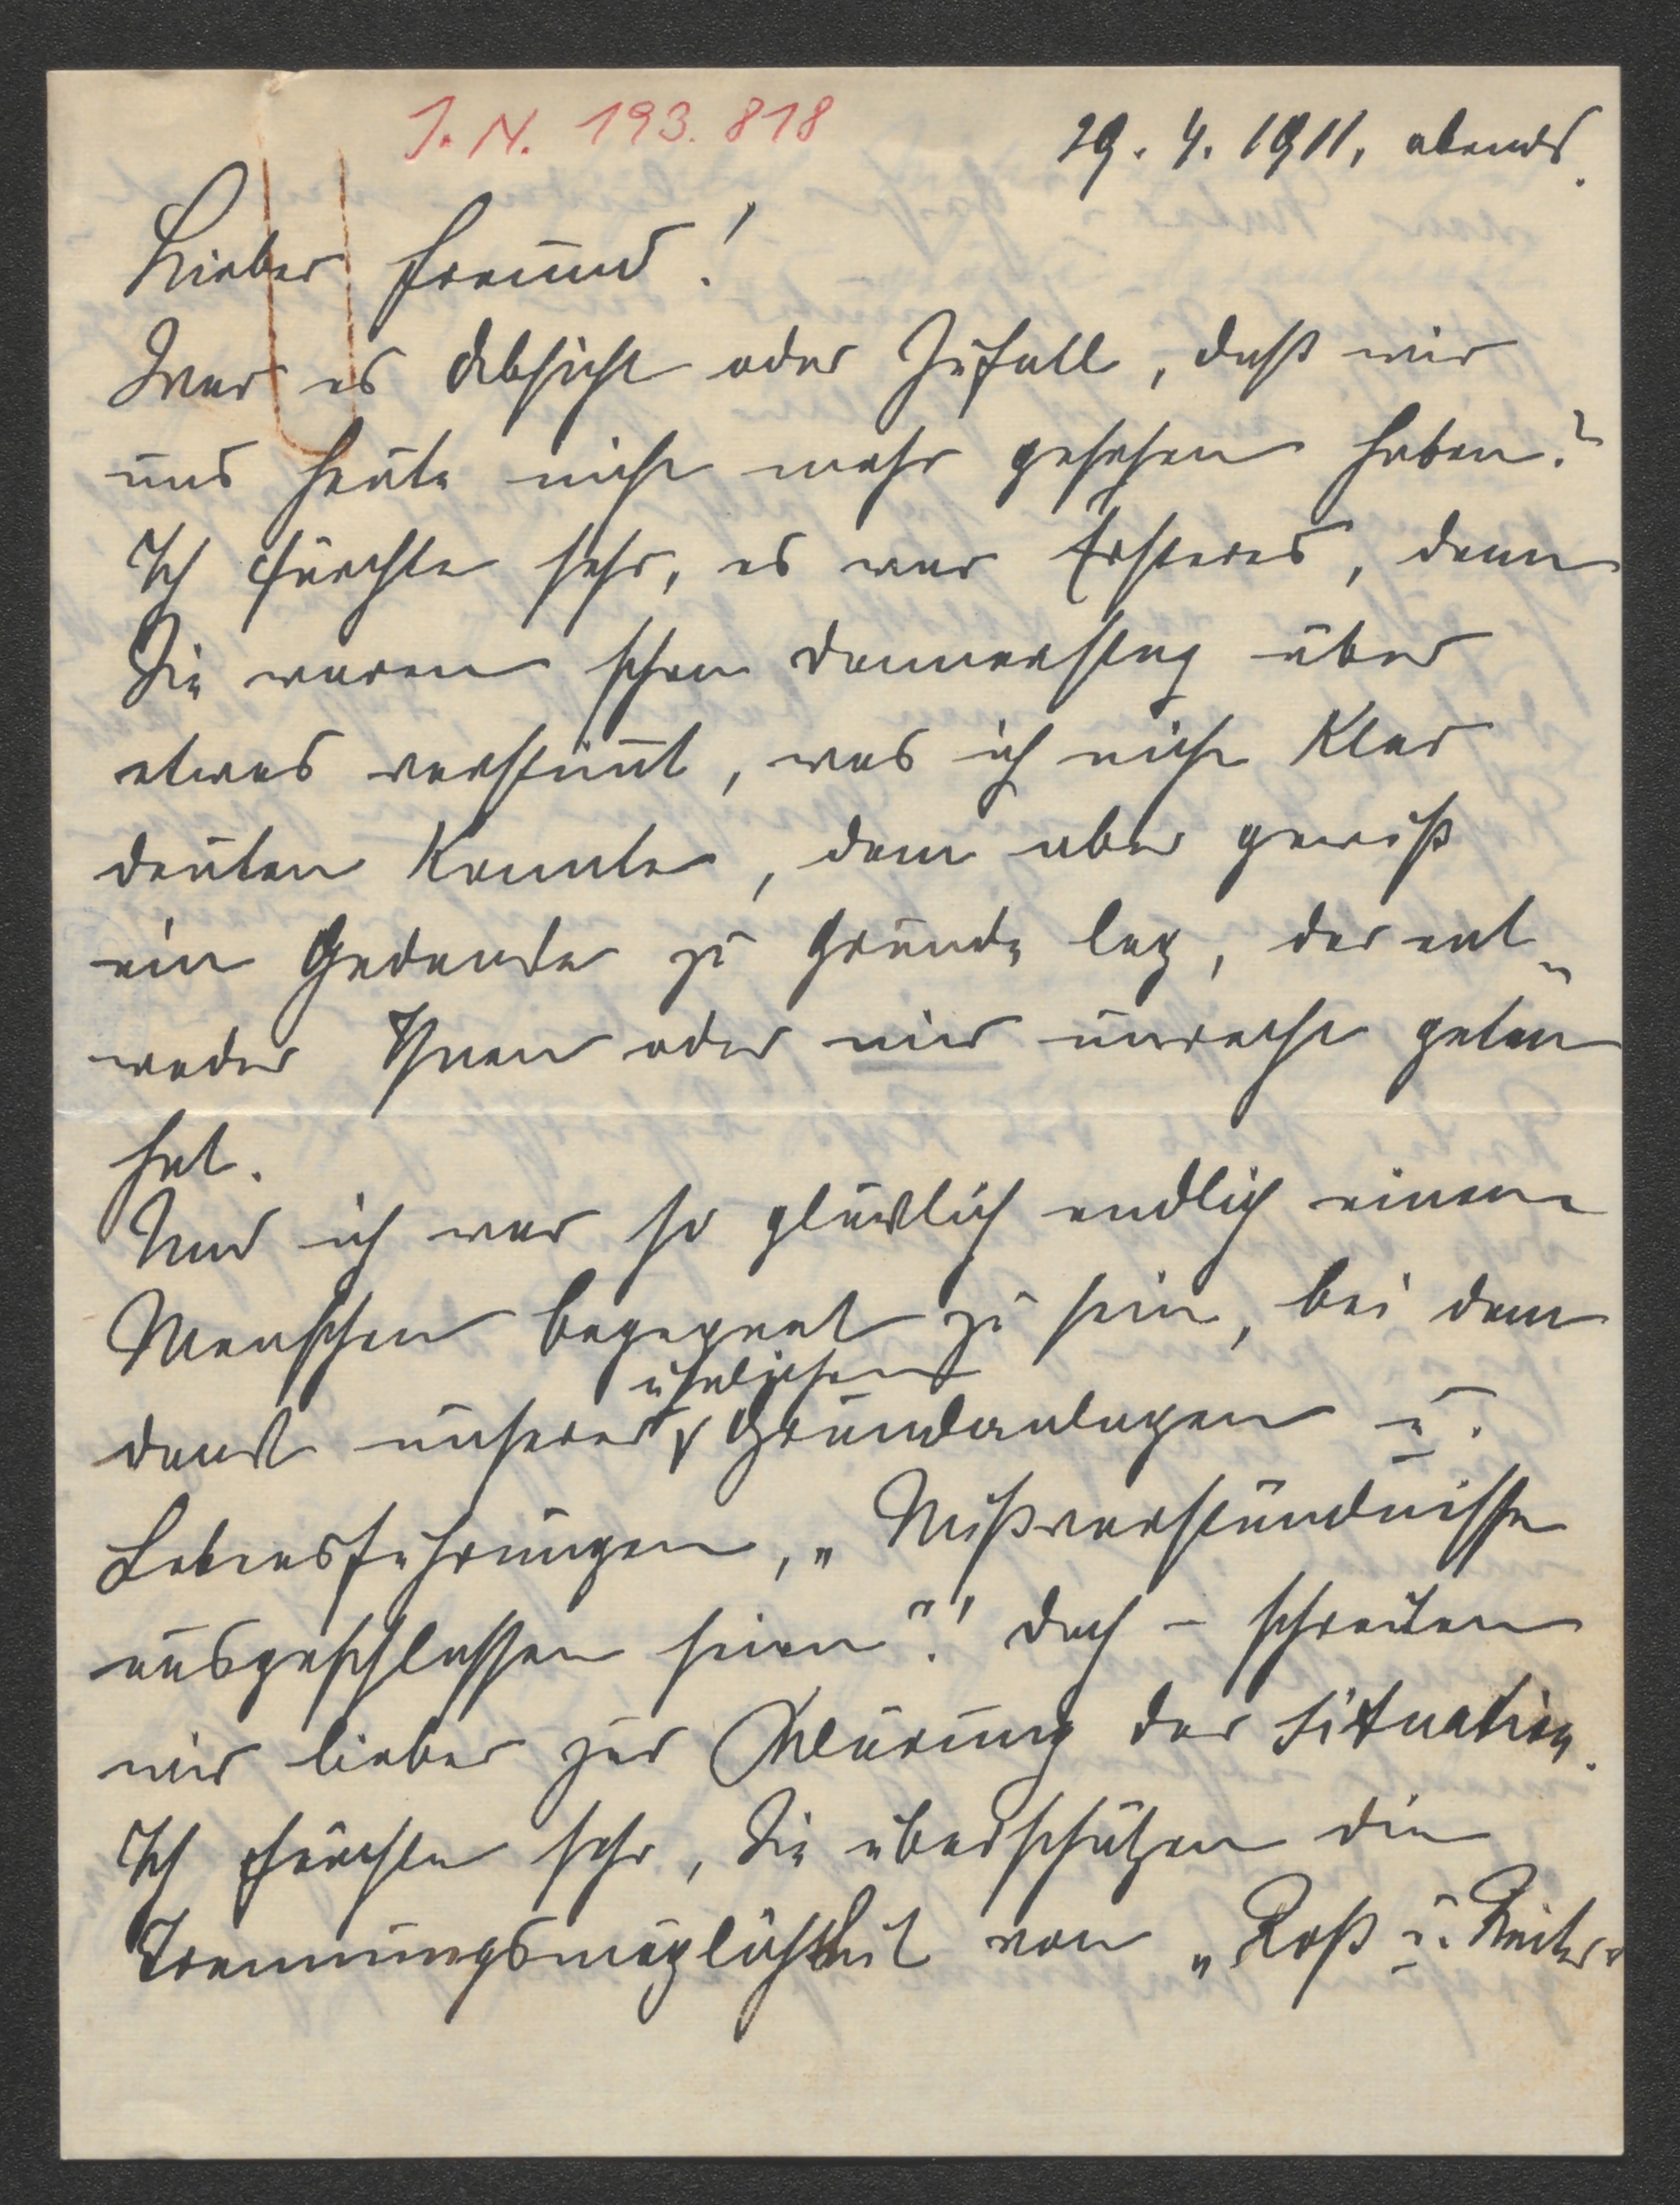 J. N. 193.818
29. 4. 1911, abends.
Lieber Freund!
War es Absicht oder Zufall, daß wir
uns heute nicht mehr gesehen haben?
Ich fürchte sehr, es war Ersteres, denn
Sie waren schon Donnerstag über
etwas verstimt, was ich nicht klar
deuten konnte, dem aber gewiß
ein Gedanke zu Grunde lag, der ent-
weder Ihnen oder mir unrecht getan
hat.
Und ich war so glücklich endlich einem
Menschen begegnet zu sein, bei dem
ähnlichen
dank unserer Grundanlagen u.
Lebensführungen, „Mißverständnisse
ausgeschlossen seien“! Doch – schreiten
wir lieber zur Klärung der Situation.
Ich fürchte sehr, Sie überschätzen die
Trennungsmöglichkeit von „Roß u. Reiter“